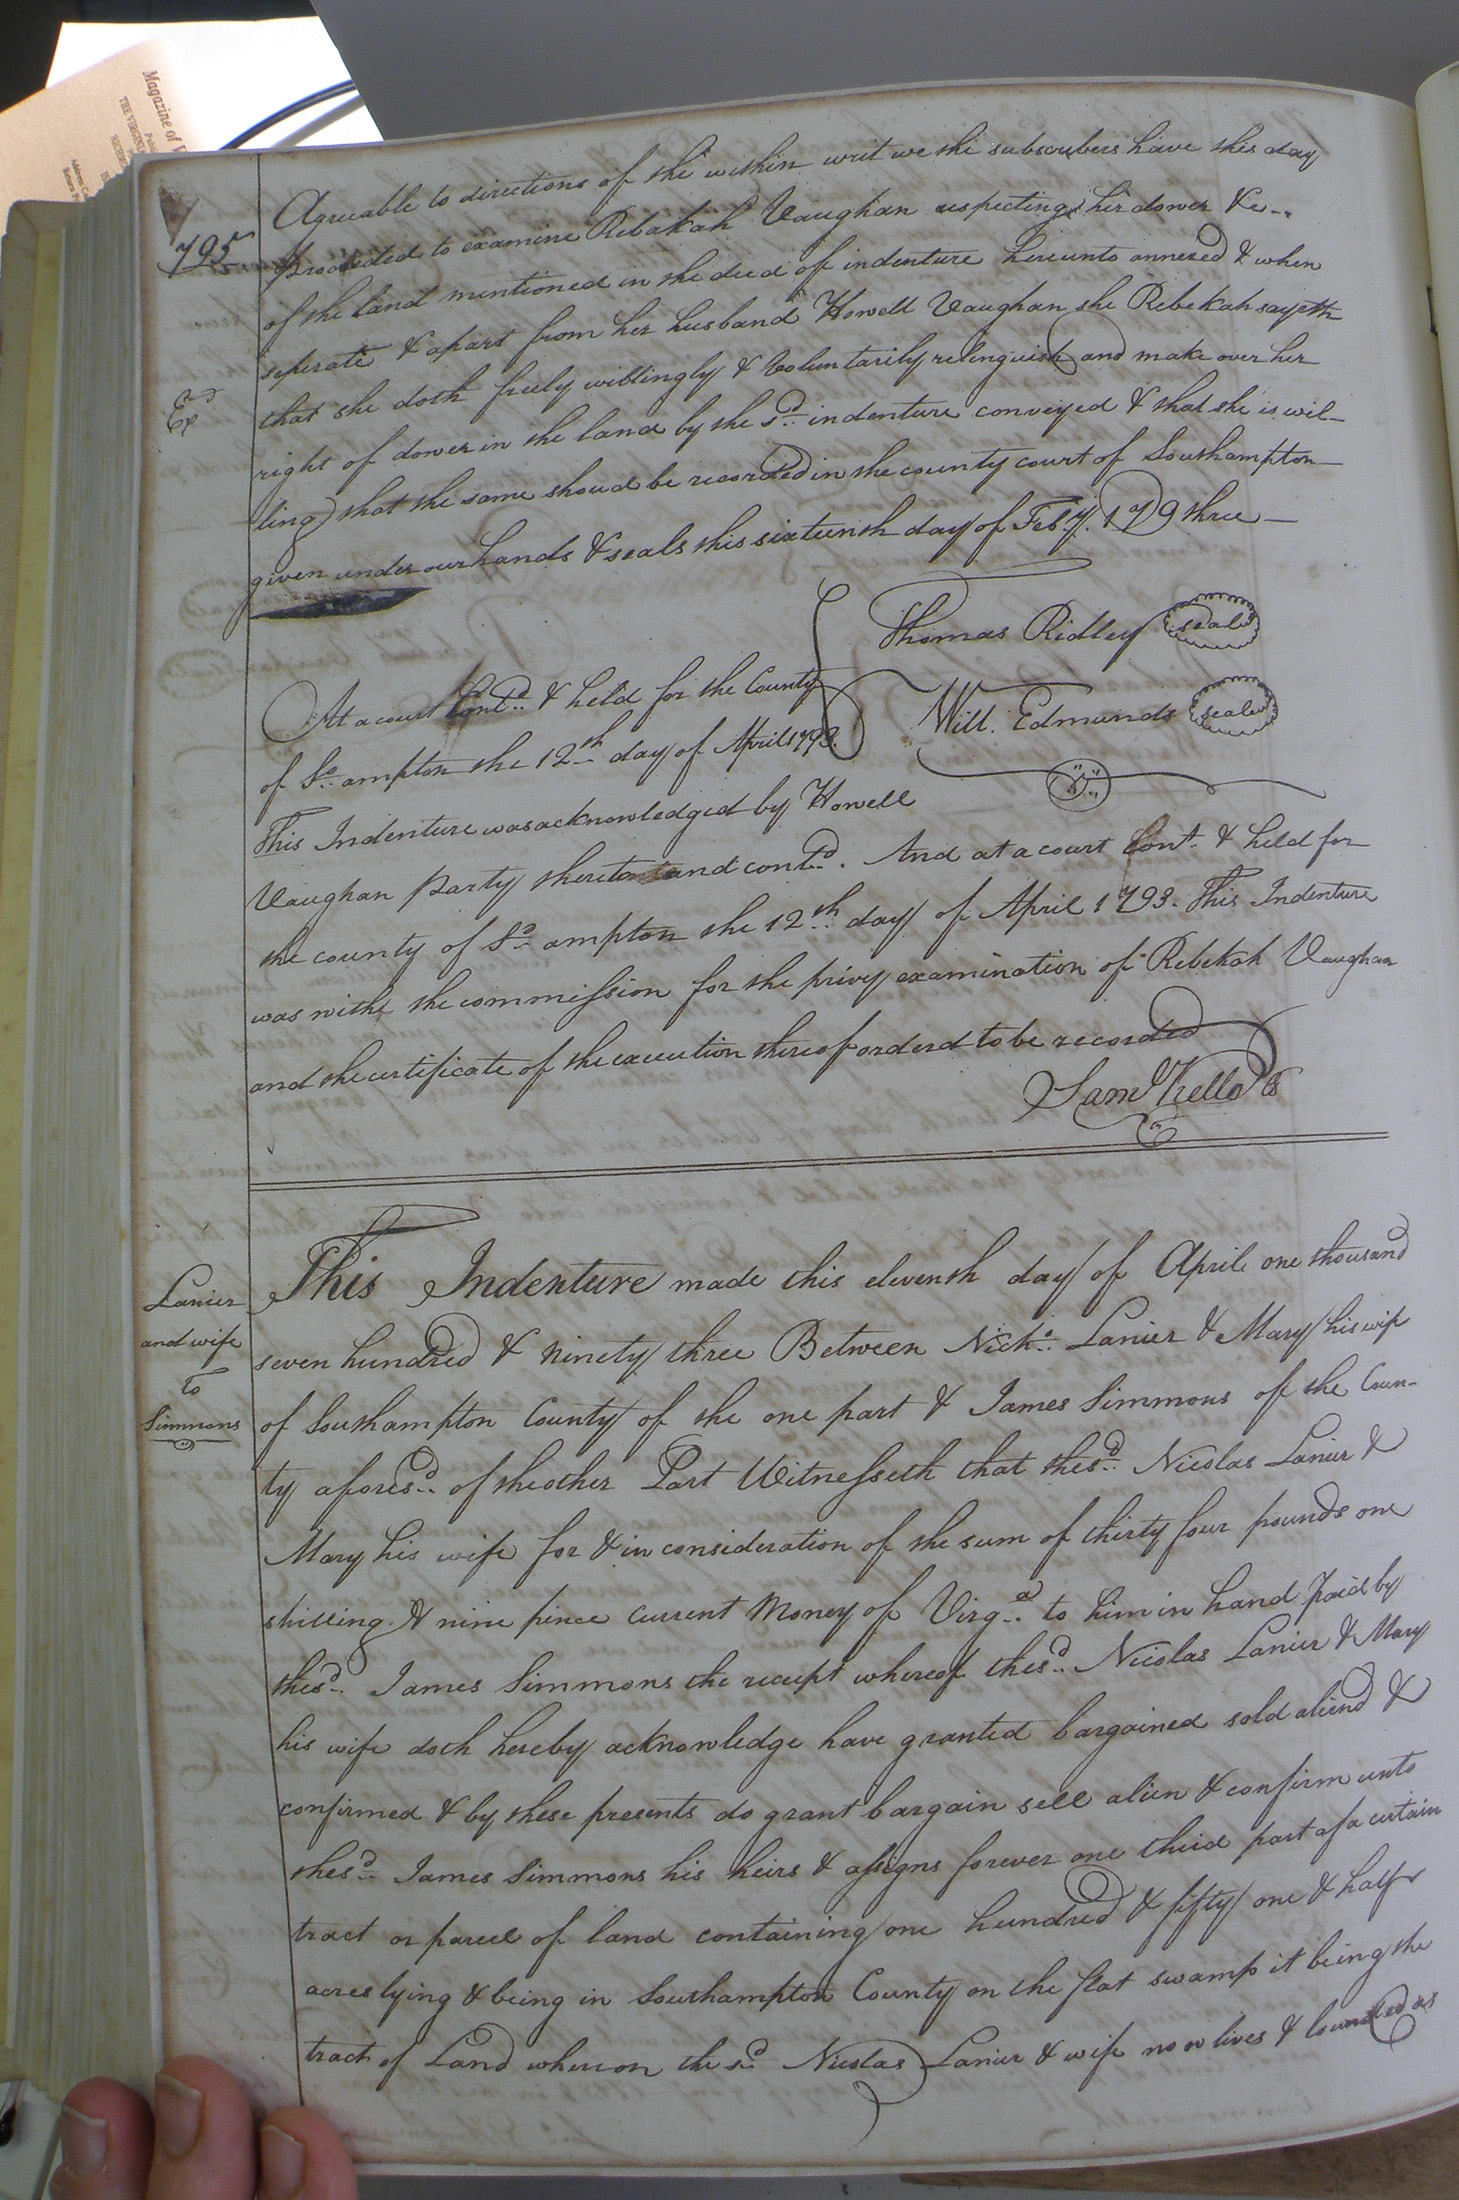 Magazine of
THE VIRGINIA
795
Agreeable to directions of the within writ we the subscribers have this day
proceeded to examine Rebakah Vaughan respecting her dower &c
of the land mentioned in the deed of indenture hereunto annexed & when
seperate & apart from her husband Howell Vaughan she Rebekah sayeth
that she doth freely willingly & Voluntarily relinguish and make over her
Exd
right of dower in the land by the sd. indenture conveyed & that she is wil-
ling that the same shoud be recorded in the county court of Southampton
given under our hands & seals this sixteenth day of Feby. 179 three
Thomas Ridley seal
Will. Edmunds seal
At a court Contd. & held for the County
of So.ampton the 12th day of April 1793.
This Indenture was acknowledged by Howell
Vaughan Party thereto and contd. And at a court Cont. & held for
the county of So.ampton the 12th day of April 1793. This Indenture
was withe the commission for the privy examination of Rebekah Vaughan
and the certificate of the execution thereof orderd to be recorded
Saml Kello
Lanier
and wife
to
Simmons
This Indenture made this eleventh day of April one thousand
seven hundred & ninety three Between Nichs. Lanier & Mary his wife
of Southampton County of the one part & James Simmons of the Coun-
ty aforesd. of the other Part Witnesseth that the sd. Nicolas Lanier &
Mary his wife for & in consideration of the sum of thirty four pounds one
shilling & nine pince Current Money of Virga. to him in hand Paid by
the sd. James Simmons the receipt whereof the sd. Nicolas Lanier & Mary
his wife doth hereby acknowledge have granted bargained sold aliend &
confirmed & by these presents do grant bargain sell alien & confirm unto
the sd. James Simmons his heirs & assigns forever one third part of a certain
tract or parcel of land containing one hundred & fifty one & half
acres lying & being in Southampton County on the flat swamp it being the
tract of Land whereon the sd Nicolas Lanier & wife now lives & bounded as